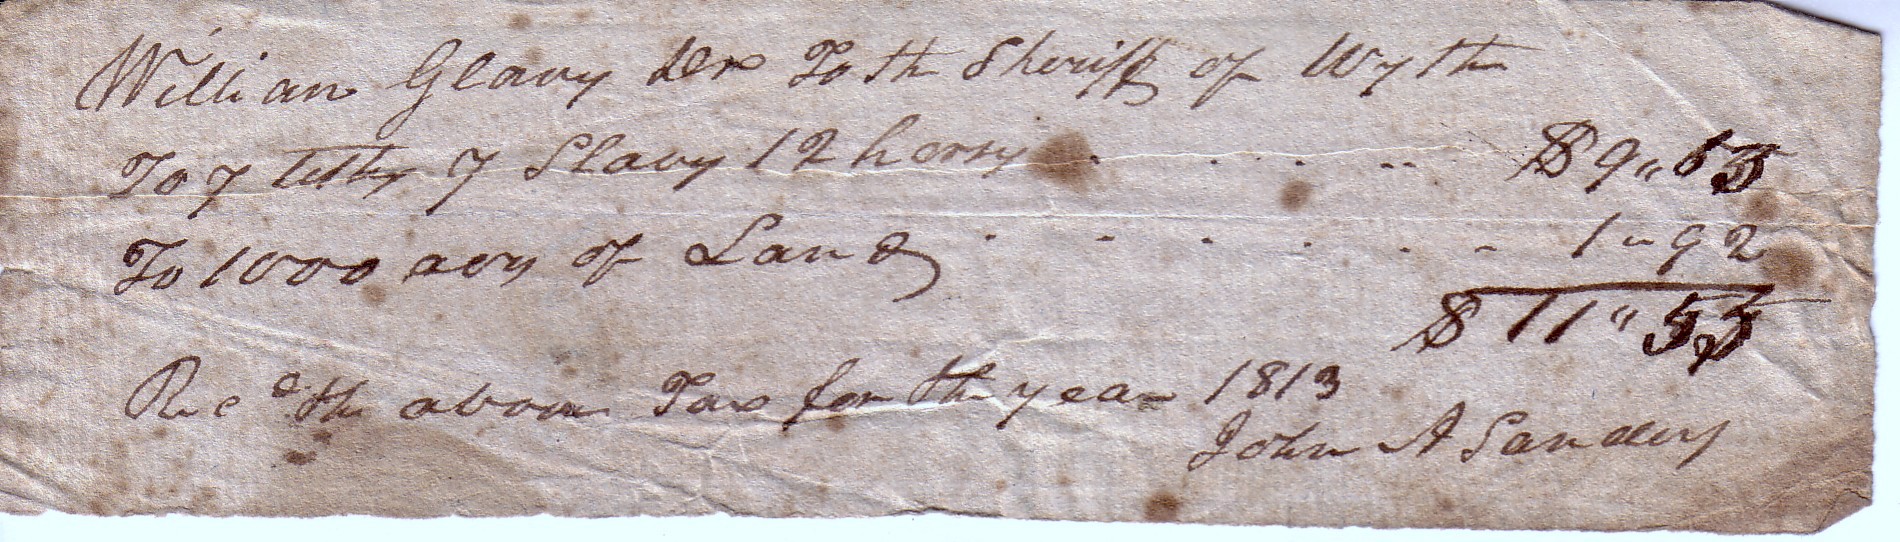 William Glavy Der To th Sheriff of Wyth
To 7 tithes 7 Slavs 12 horses $ 9,,63
To 1000 acrs of Land 1,,92
$ 11,,55
Recd the above Tax for the year 1813
John A Sanders